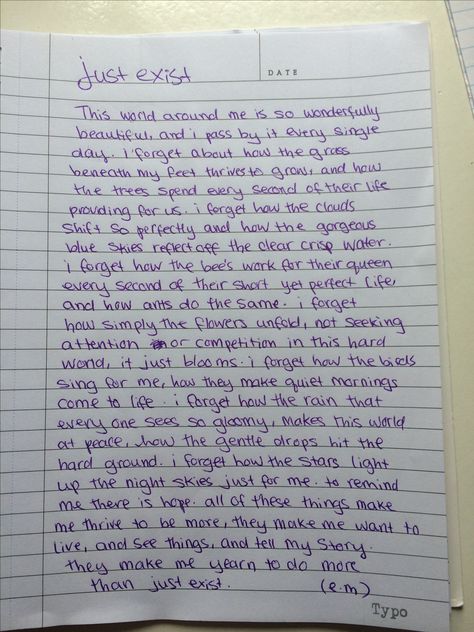 just exist
DATE
This world around me is so wonderfully
beautiful, and i pass by it every single
day. i forget about how the grass
beneath my feet thrives to grow, and how
the trees spend every second of their life
providing for us. i forget how the clouds
shift so perfectly and how the gorgeous
blue skies reflect off the clear crisp water.
i forget how the bee's work for their queen
every second of their short yet perfect life,
and how ants do the same. i forget
how simply the flowers unfold, not seeking
attention or competition in this hard
world, it just blooms. i forget how the birds
sing for me, how they make quiet mornings
come to life. i forget how the rain that
every one sees so gloomy, makes this world
at peace, how the gentle drops hit the
hard ground. i forget how the stars light
up the night skies just for me. to remind
me there is hope. all of these things make
me thrive to be more, they make me want to
live, and see things, and tell my story.
they make me yearn to do more
than just exist. (e.m)
Typo